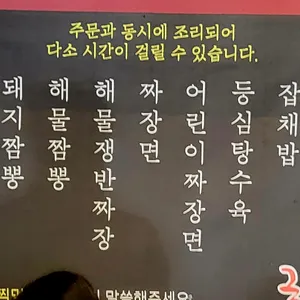 주문과 동시에 조리되어
다소 시간이 걸릴 수 있습니다.
돼지짬뽕
해물짬뽕
해물쟁반짜장
짜장면
어린이짜장면
등심탕수육
잡채밥
말씀해주세요